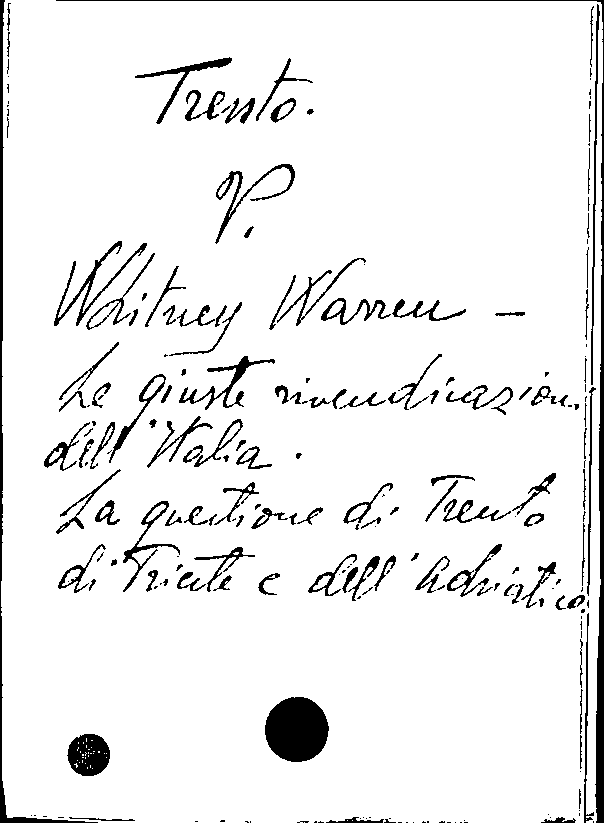 Trento.
V.
Whitney Warren –
Le giuste rivendicazioni
dell'Italia.
La questione di Trento
di Trieste e dell'Adriatico.